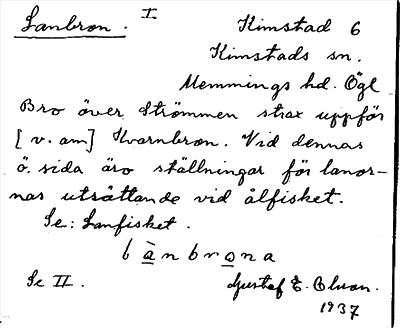 Lanbron. I Kimstad 6
Kimstads sn.
Memmings hd. Ögl
Bro över Strömmen strax uppför
[v. om] Kvarnbron. Vid dennas
ö. sida äro ställningar för lanor-
nas utsättande vid ålfisket.
Se: Lanfisket.
lànbrona
Se II. Gustaf E. Olson.
1937